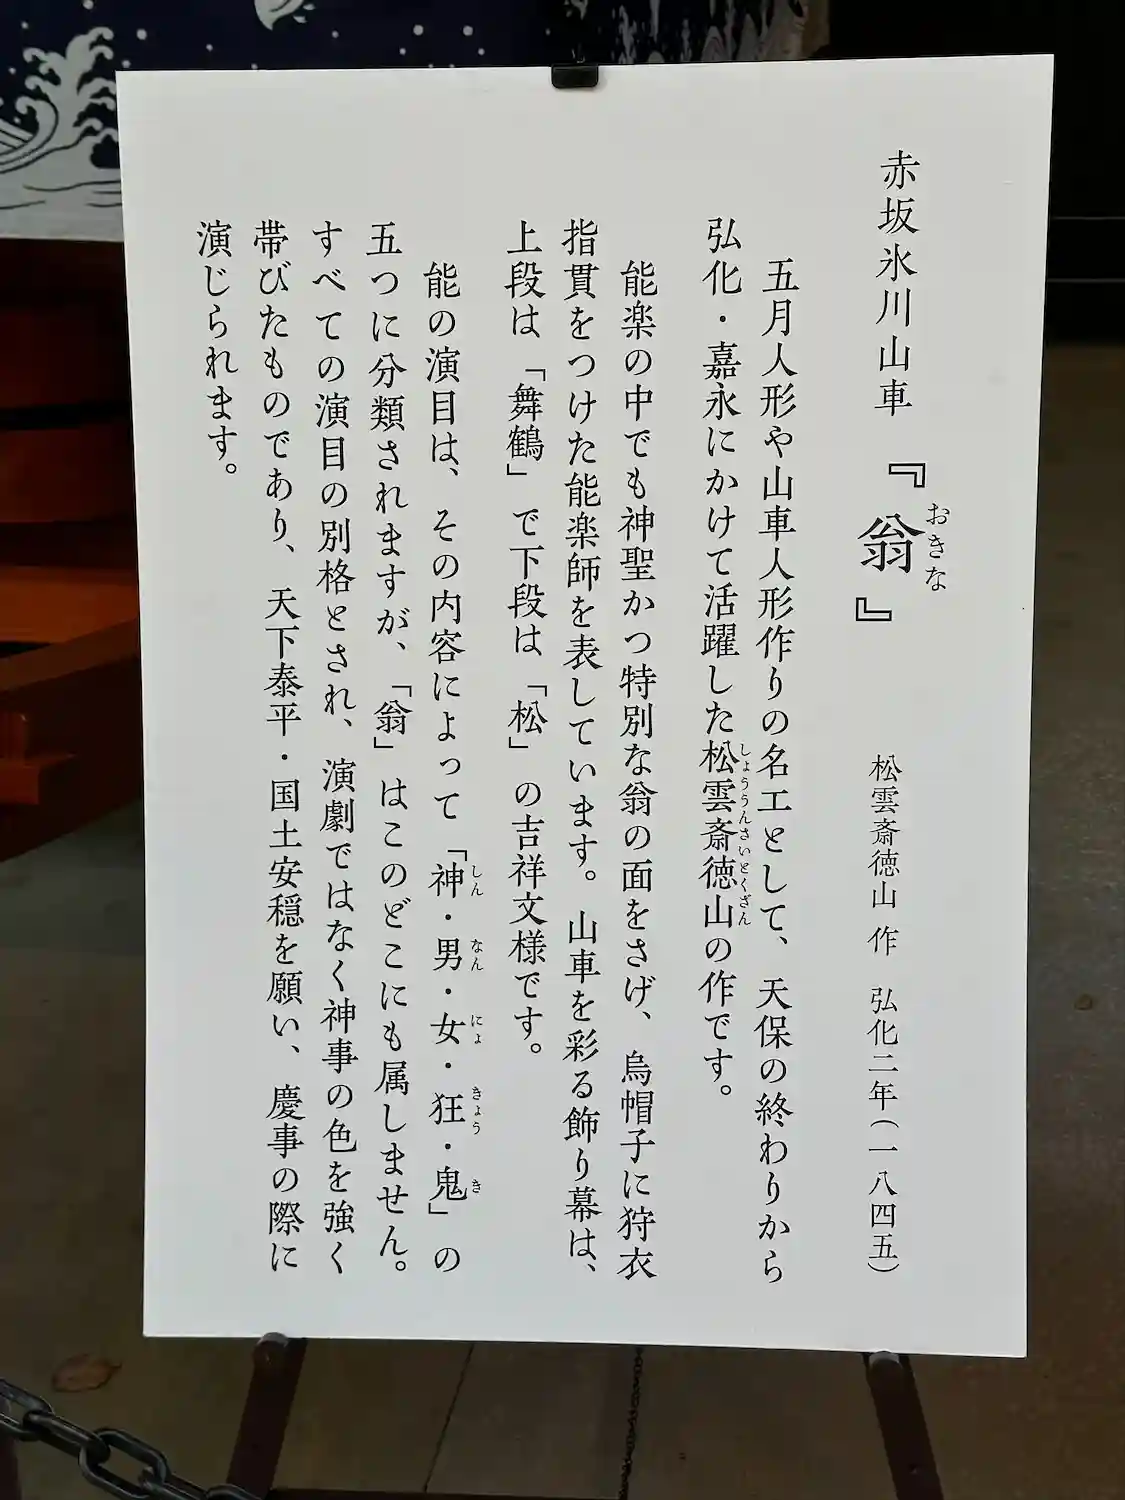 赤坂氷川山車 『翁』 松雲斎徳山 作 弘化二年(一八四五)
おきな
五月人形や山車人形作りの名工として、天保の終わりから
弘化・嘉永にかけて活躍した松雲斎徳山の作です。
しょううんさいとくざん
能楽の中でも神聖かつ特別な翁の面をさげ、烏帽子に狩衣
指貫をつけた能楽師を表しています。山車を彩る飾り幕は、
上段は「舞鶴」で下段は「松」の吉祥文様です。
能の演目は、その内容によって「神・男・女・狂・鬼」の
しん なん にょ きょう き
五つに分類されますが、「翁」はこのどこにも属しません。
すべての演目の別格とされ、演劇ではなく神事の色を強く
帯びたものであり、天下泰平・国土安穏を願い、慶事の際に
演じられます。